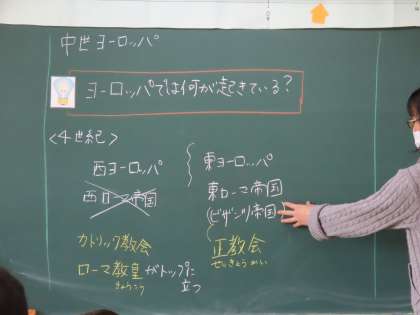 中世ヨーロッパ
ヨーロッパでは何が起きている?
<4世紀>
西ヨーロッパ
西ローマ帝国
カトリック教会
ローマ教皇がトップに
きょうこう
立つ
東ヨーロッパ
東ローマ帝国
(ビザンツ帝国)
正教会
せいきょうかい